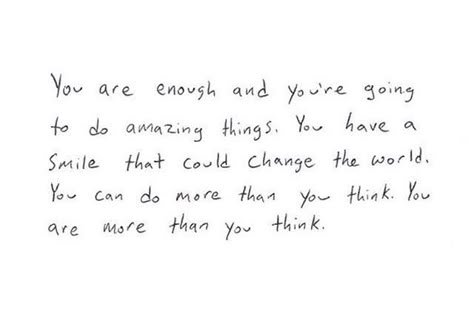 You are enough and you're going
to do amazing things. You have a
smile that could change the world.
You can do more than you think. You
are more than you think.